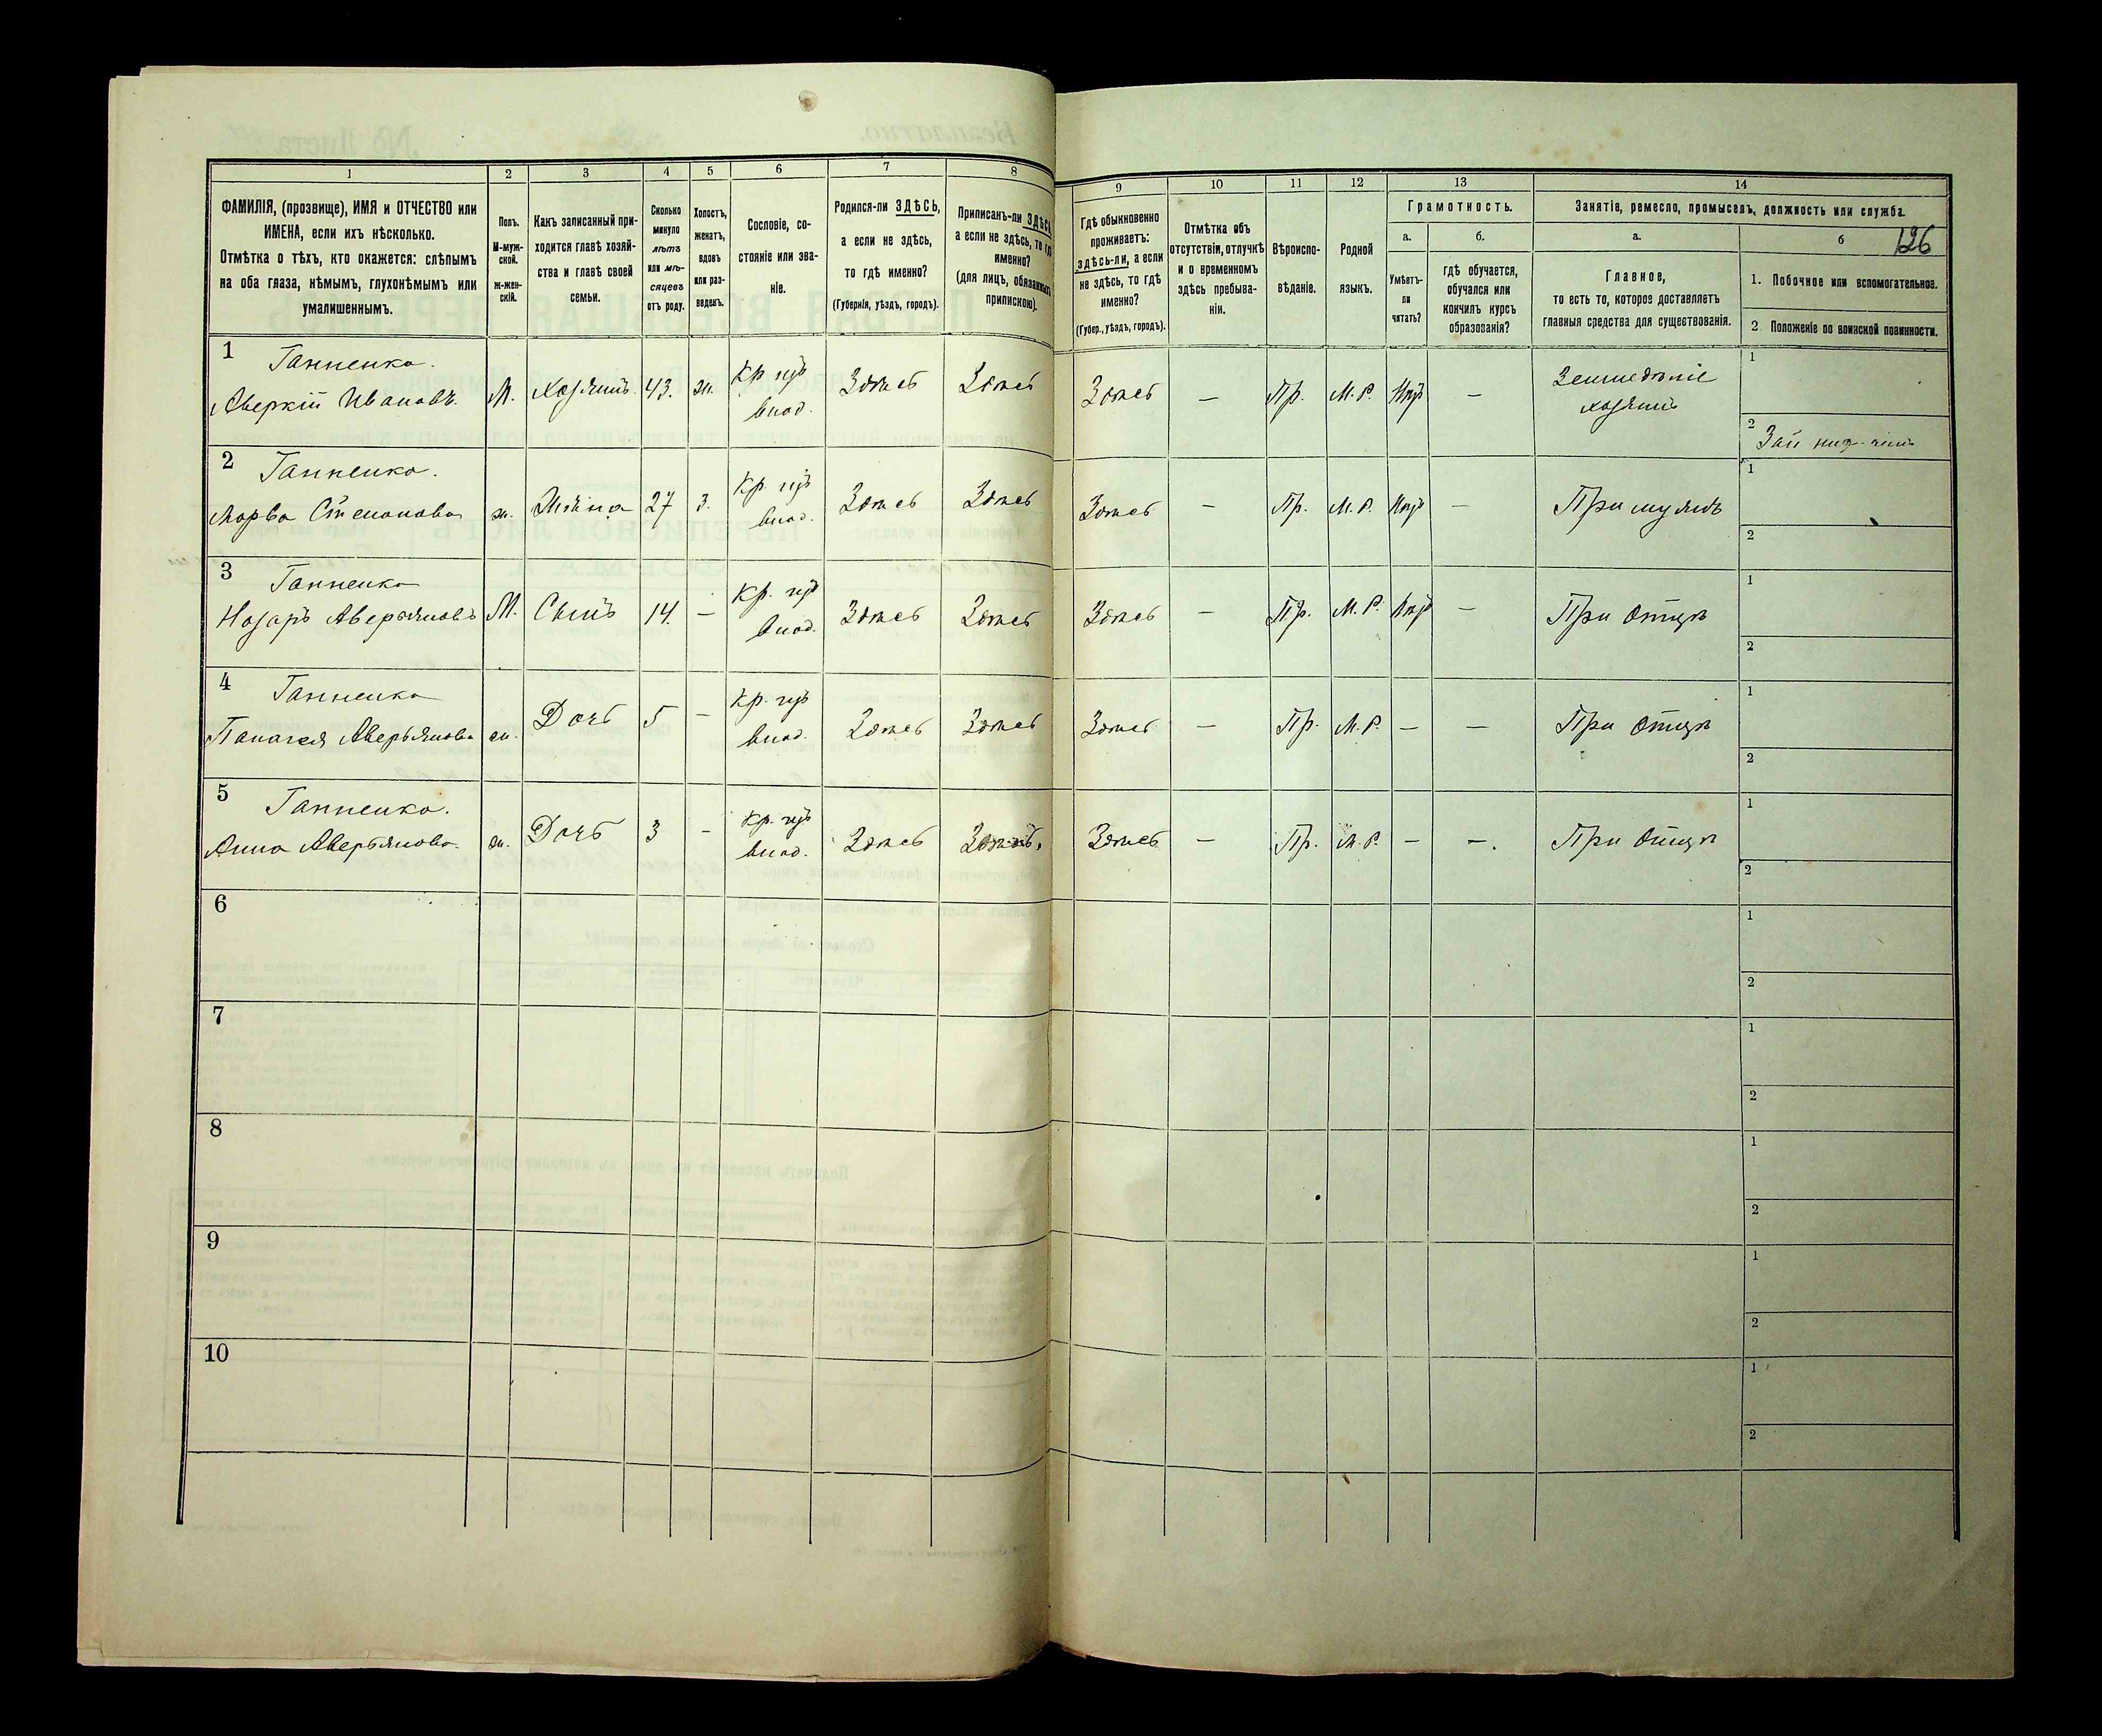 1 2 3 4 5 6 7 8
ФАМИЛІЯ, (прозвище), ИМЯ и ОТЧЕСТВО или ИМЕНА, если ихъ нѣсколько.
Отмѣтка о тѣхъ, кто окажется: слѣпымъ на оба глаза, нѣмымъ, глухонѣмымъ или умалишеннымъ.
Полъ.
М-мужской.
ж-женскій.
Какъ записанный приходится главѣ хозяйства и главѣ своей семьи.
Сколько минуло лѣтъ или мѣсяцевъ отъ роду.
Холостъ, женатъ, вдовъ или разведенъ.
Сословіе, состояніе или званіе.
Родился-ли ЗДѢСЬ, а если не здѣсь, то гдѣ именно?
(Губернія, уѣздъ, городъ).
Приписанъ-ли ЗДѢСЬ, а если не здѣсь, то гдѣ именно?
(для лицъ, обязанныхъ припискою).
9 10 11 12 13 14
Гдѣ обыкновенно проживаетъ: здѣсь-ли, а если не здѣсь, то гдѣ именно?
(Губер., уѣздъ, городъ).
Отмѣтка объ отсутствіи, отлучкѣ и о временномъ здѣсь пребываніи.
Вѣроисповѣданіе.
Родной языкъ.
Грамотность.
а.
Умѣетъ-ли читать?
б.
гдѣ обучается, обучался или кончилъ курсъ образованія?
Занятіе, ремесло, промыселъ, должность или служба.
а.
Главное,
то есть то, которое доставляетъ главныя средства для существованія.
б
126
1. Побочное или вспомогательное.
2 Положеніе по воинской повинности.
1 Ганненко.
Аверкій Ивановъ. М. Хозяинъ 43. ж. Кр. Здѣсь Здѣсь Здѣсь — Пр. М. Р. — Земледѣліе хозяинъ
1
2
2 Ганненко.
Марва Степанова ж. Жена 27 з. Кр. Здѣсь Здѣсь Здѣсь — Пр. М. Р. — При мужѣ
1
2
3 Ганненко
Назаръ Аверьяновъ М. Сынъ 14. — Кр. Здѣсь Здѣсь Здѣсь — Пр. М. Р. — При Отцѣ
1
2
4 Ганненко
Панагея Аверьянова ж. Дочь 5 — Кр. Здѣсь Здѣсь Здѣсь — Пр. М. Р. — — При Отцѣ
1
2
5 Ганненко.
Анна Аверьянова. ж. Дочь 3 — Кр. Здѣсь Здѣсь Здѣсь — Пр. М. Р. — — При Отцѣ
1
2
6
1
2
7
1
2
8
1
2
9
1
2
10
1
2